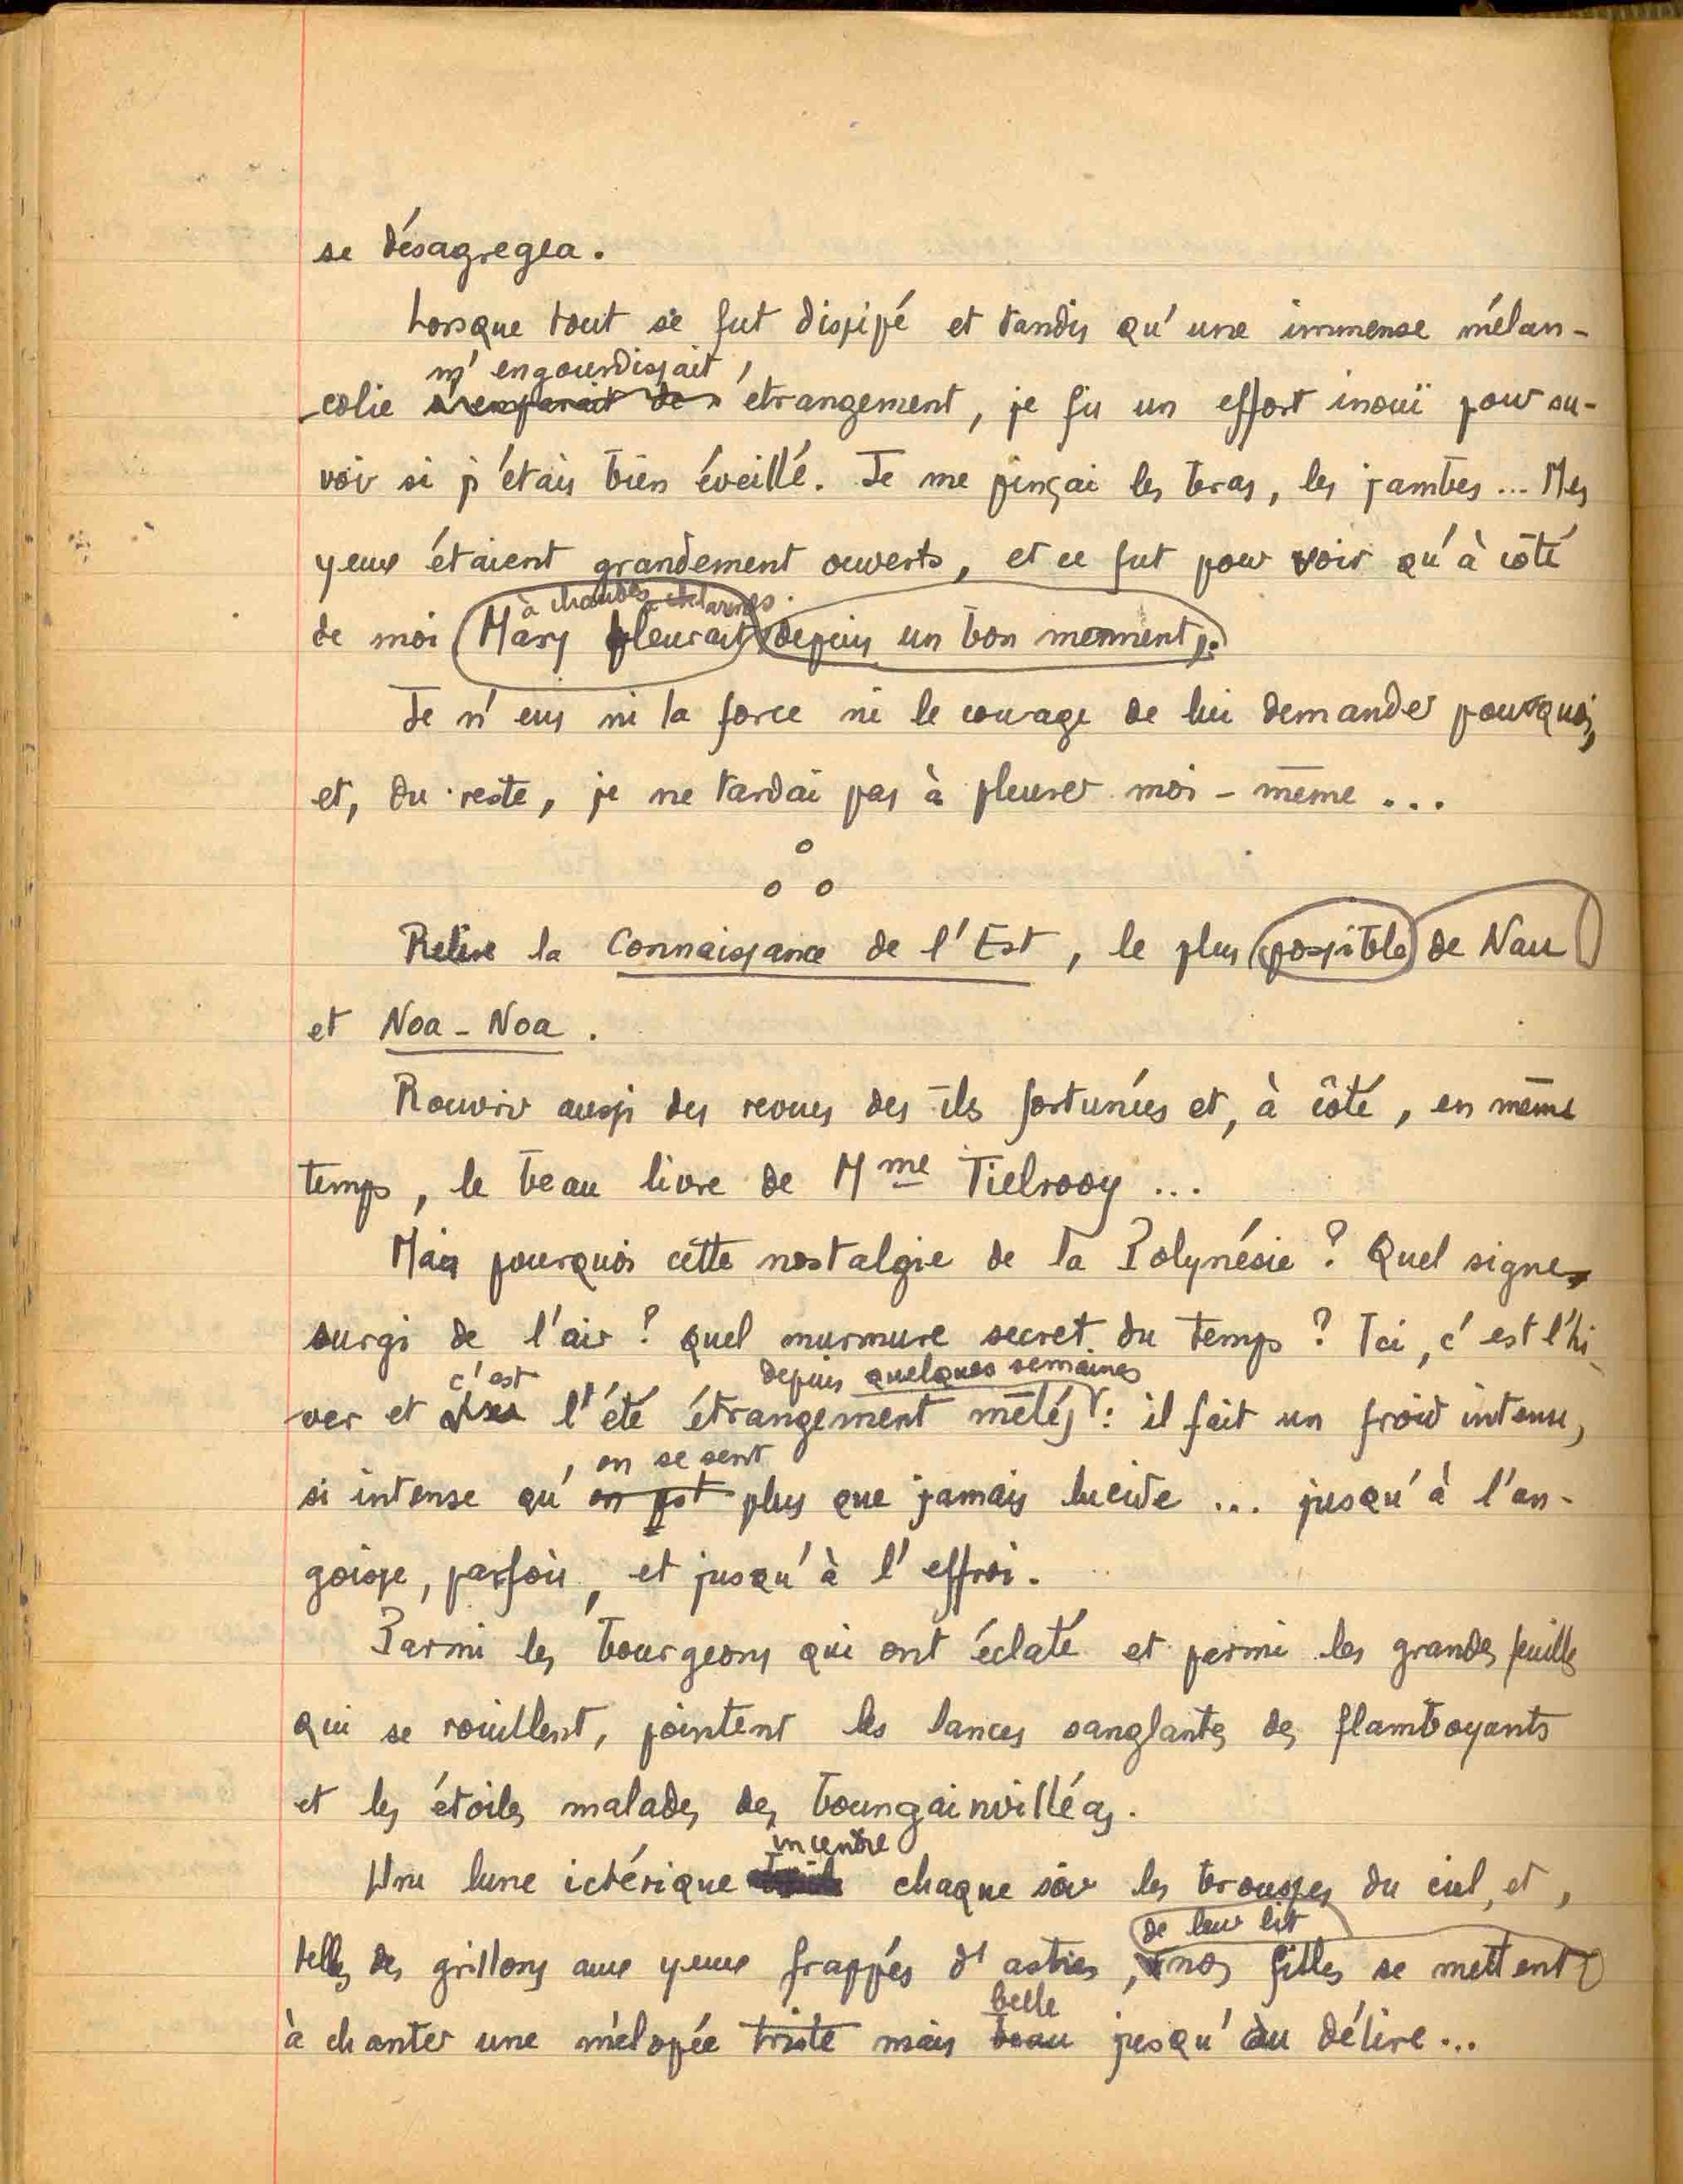 se désagregea.
Lorsque tout se fut dissipé et tandis qu'une immense mélan-
m'engourdissait
colie s'emparait de étrangement, je fis un effort inouï pour sa-
voir si j'étais bien éveillé. Je me pinçai les bras, les jambes... Mes
yeux étaient grandement ouverts, et ce fut pour voir qu'à côté
à chaudes larmes.
de moi Mary pleurait depuis un bon momment.
Je n'eus ni la force ni le courage de lui demander pourquoi,
et, du reste, je ne tardai pas à pleurer moi-même...
Relire la Connaissance de l'Est, le plus possible de Nau
et Noa-Noa.
Rouvrir aussi des revues des îles fortunées et, à côté, en même
temps, le beau livre de Mme Tielrooy...
Mais pourquoi cette nostalgie de la Polynésie ? Quel signe
surgi de l'air ? quel murmure secret du temps ? Ici, c'est l'hi-
c'est depuis quelques semaines
ver et l'été étrangement mêlés : il fait un froid intense,
, on se sent
si intense qu'on est plus que jamais lucide... jusqu'à l'an-
goisse, parfois, et jusqu'à l'effroi.
Parmi les bourgeons qui ont éclaté et parmi les grandes feuilles
qui se rouillent, pointent les lances sanglantes des flamboyants
et les étoiles malades des boungainvilléas.
incendie
Une lune ictérique chaque soir les brousses du ciel, et,
de leur lit
telles des grillons aux yeux frappés d'astres, nos filles se mettent
belle
à chanter une mélopée triste mais beau jusqu'au délire...